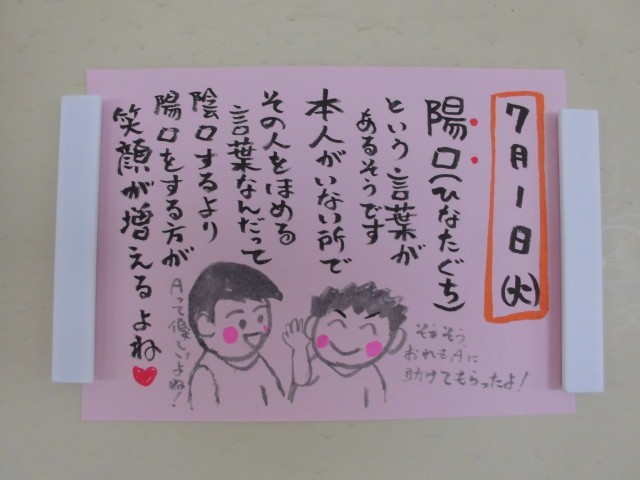 7月1日(火)
陽口(ひなたぐち)
という言葉が
あるそうです
本人がいない所で
その人をほめる
言葉なんだって
陰口するより
陽口をする方が
笑顔が増えるよね
Aって優しいよね!
そうそう
おれもAに
助けてもらったよ!